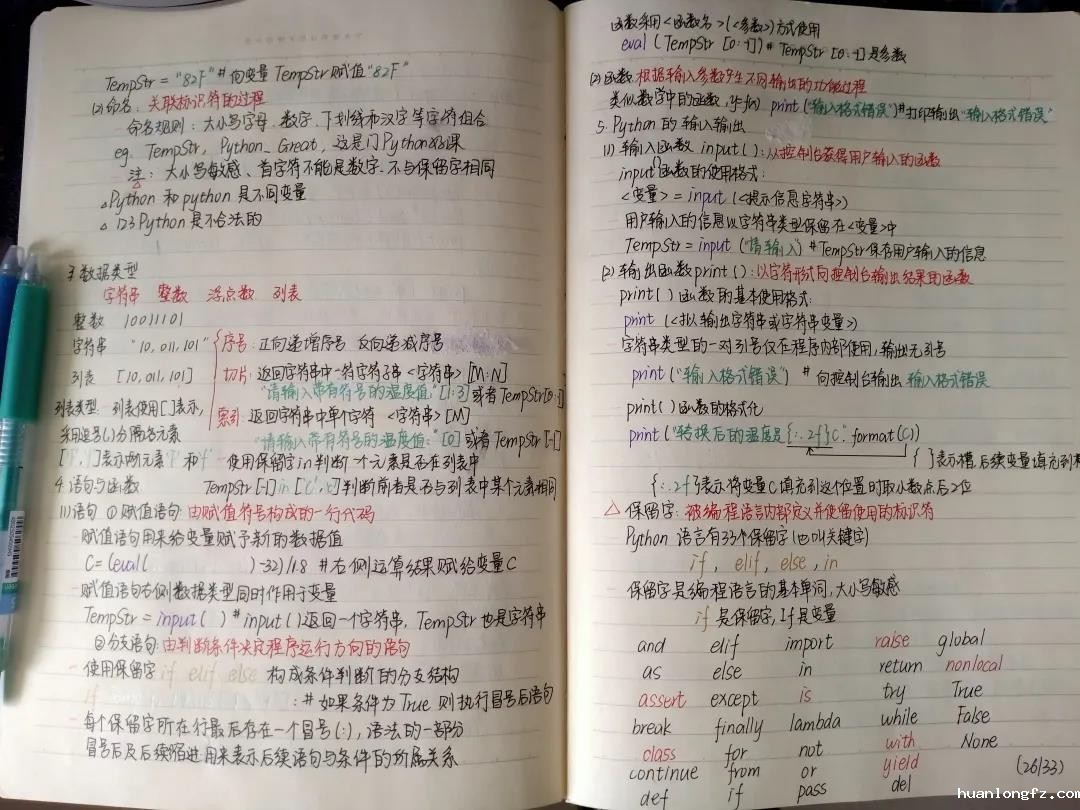 TempStr = "82F" # 向变量 TempStr 赋值 "82F"
(2) 命名: 关联标识符的过程
- 命名规则: 大小写字母、数字、下划线和汉字等字符组合
eg. TempStr, Python_Great, 这是门Python好课
- 注: 大小写敏感、首字符不能是数字、不与保留字相同
△Python 和 python 是不同变量
△ 123Python 是不合法的
3. 数据类型
字符串 整数 浮点数 列表
整数 10011101
字符串 "10,011,101"
列表 [10,011,101]
序号: 正向递增序号 反向递减序号
切片: 返回字符串中一段字符子串 <字符串> [M:N]
"请输入带有符号的温度值:"[1:3] 或者 TempStr[0:-1]
索引: 返回字符串中单个字符 <字符串> [M]
"请输入带有符号的温度值:" [0] 或者 TempStr [-1]
列表类型: 列表使用[]表示,
采用逗号(,)分隔各元素
['F','f']表示两元素'F' 和'f' - 使用保留字 in 判断一个元素是否在列表中
4. 语句与函数 TempStr[-1] in ['C','c'] 判断前者是否与列表中某个元素相同
(1) 语句 ① 赋值语句: 由赋值符号构成的一行代码
- 赋值语句用来给变量赋予新的数据值
C= (eval( )-32)/1.8 # 右侧运算结果赋给变量C
- 赋值语句右侧数据类型同时作用于变量
TempStr = input( ) # input()返回一个字符串, TempStr 也是字符串
② 分支语句: 由判断条件决定程序运行方向的语句
- 使用保留字 if elif else 构成条件判断的分支结构
if : # 如果条件为 True 则执行冒号后语句
- 每个保留字所在行最后存在一个冒号(:), 语法的一部分
冒号后及后续缩进用来表示后续语句与条件的所属关系
函数采用 <函数名> (<参数>) 方式使用
eval (TempStr [0:-1]) # TempStr [0:-1] 是参数
(2) 函数: 根据输入参数产生不同输出的功能过程
类似数学中的函数, y=f(x) print ("输入格式错误") # 打印输出 "输入格式错误"
5. Python 的输入输出
(1) 输入函数 input(): 从控制台获得用户输入的函数
input()函数的使用格式:
<变量> = input (<提示信息字符串>)
- 用户输入的信息以字符串类型保留在<变量>中
TempStr = input ("请输入") # TempStr 保存用户输入的信息
(2) 输出函数 print(): 以字符形式向控制台输出结果的函数
print() 函数的基本使用格式:
print (<拟输出字符串或字符串变量>)
- 字符串类型的一对引号仅在程序内部使用, 输出无引号
print("输入格式错误") # 向控制台输出 输入格式错误
- print()函数的格式化
print("转换后的温度是{:.2f}C".format(C))
{ }表示槽, 后续变量填充到槽
{:.2f}表示将变量C填充到这个位置时取小数点后2位
△ 保留字: 被编程语言内部定义并保留使用的标识符
- Python 语言有33个保留字(也叫关键字)
if, elif, else, in
- 保留字是编程语言的基本单词, 大小写敏感
if 是保留字, If 是变量
and elif import raise global
as else in return nonlocal
assert except is try True
break finally lambda while False
class for not with None
continue from or yield
def if pass del
(26/33)
huanlongfz.com